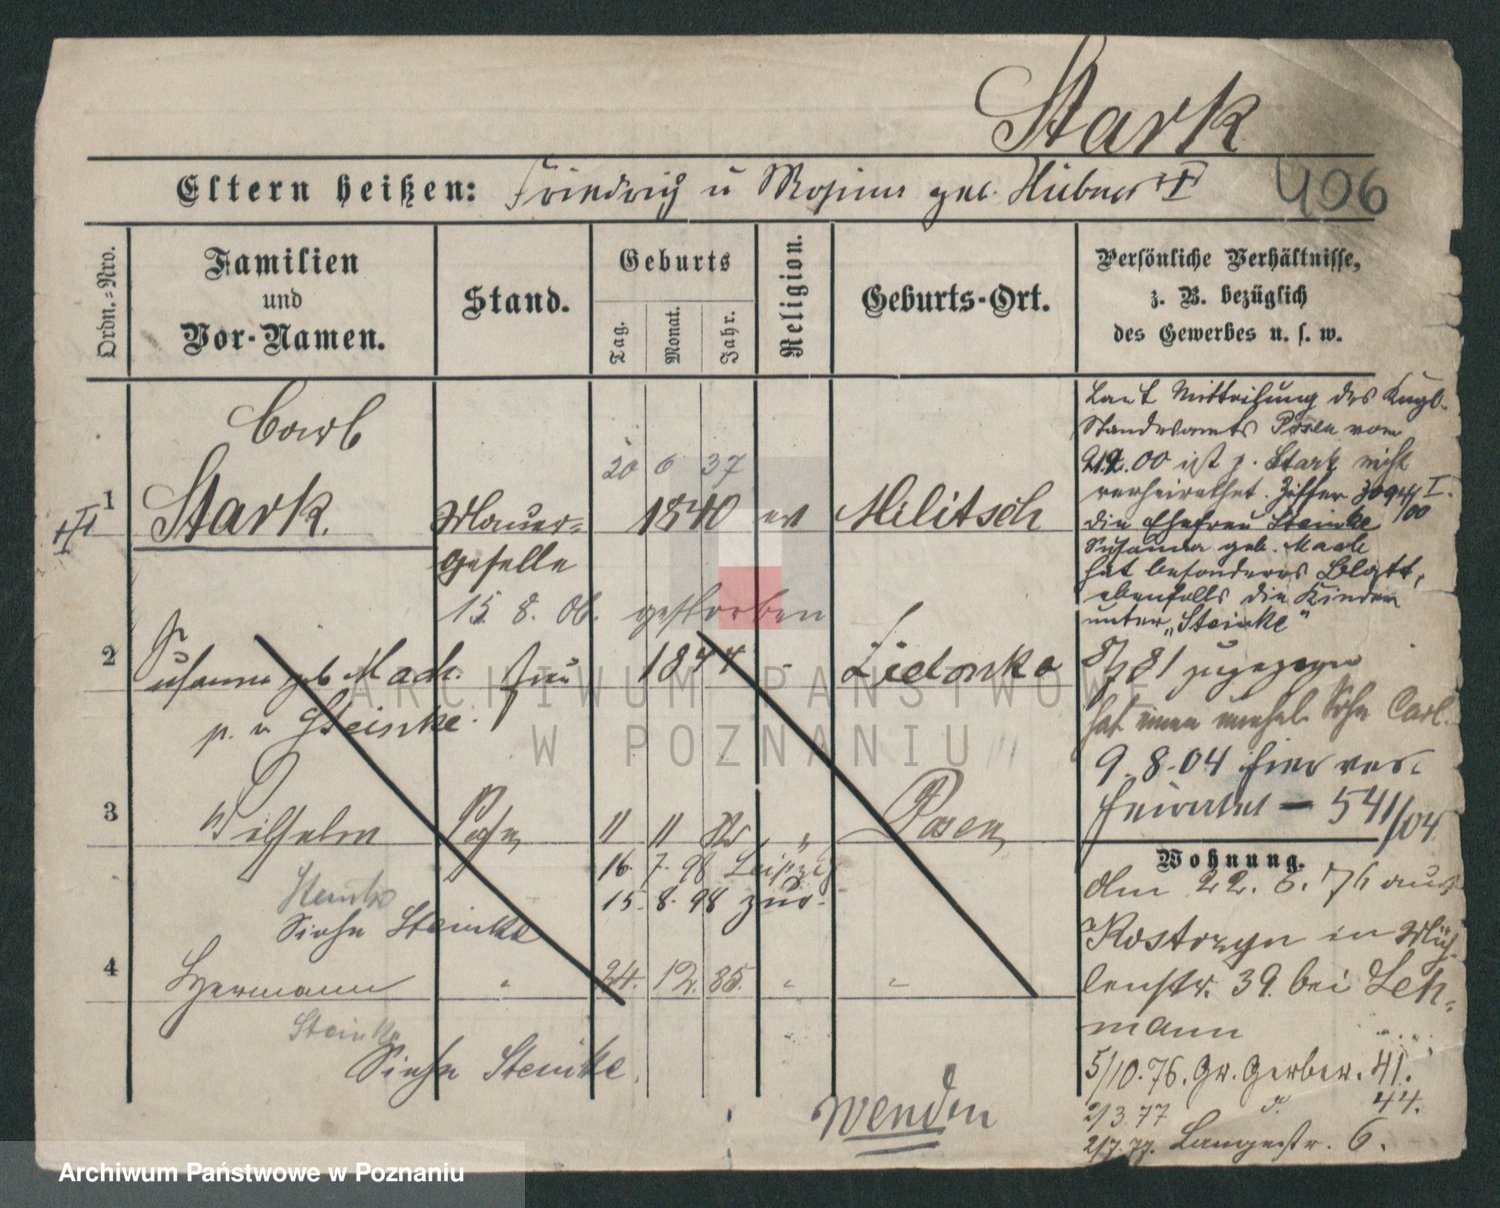 Stark
Eltern heißen: Friedrich u Rosina geb. Hübner
406
Ordn.-Nro.
Familien
und
Vor-Namen.
Stand.
Geburts
Tag.
Monat.
Jahr.
Religion.
Geburts-Ort.
Persönliche Verhältnisse,
z. B. bezüglich
des Gewerbes u. s. w.
1
Carl
Stark.
Maurer-
geselle
20 6 37
1840
ev
Militsch
15. 8. 06. gestorben
Laut Mittheilung des Kngl.
Standesamts Posen vom
ist p. Stark nicht
verheirathet. Ziffer 3094/00 I.
die Ehefrau Steinke
Susanna geb. Mach
hat besonderes Blatt,
ebenfalls die Kinder
unter "Steinke"
2
Susanna geb. Mach.
p. v. Steinke.
Frau
1844
-
Liedonka
8/81 zugezogen
hat einen unehel. Sohn Carl.
9. 8. 04 hier ver-
heirathet — 541/04
3
Wilhelm
Sohn
" "
"
Posen
16. 7. 98 Leipzig
15. 8. 98 zur.
Steinke
Siehe Steinke
4
Hermann
"
24. 12. 85.
"
"
Steinke
Siehe Steinke.
Wenden
Wohnung.
Am 22. 6. 76 aus
Kostrzyn in Müh-
lenstr. 39. bei Leh-
mann
5/10. 76. Gr. Gerber. 41.
2/3 77 d. 44.
2/7. 77. Langestr. 6.
ARCHIWUM PAŃSTWOWE
W POZNANIU
Archiwum Państwowe w Poznaniu